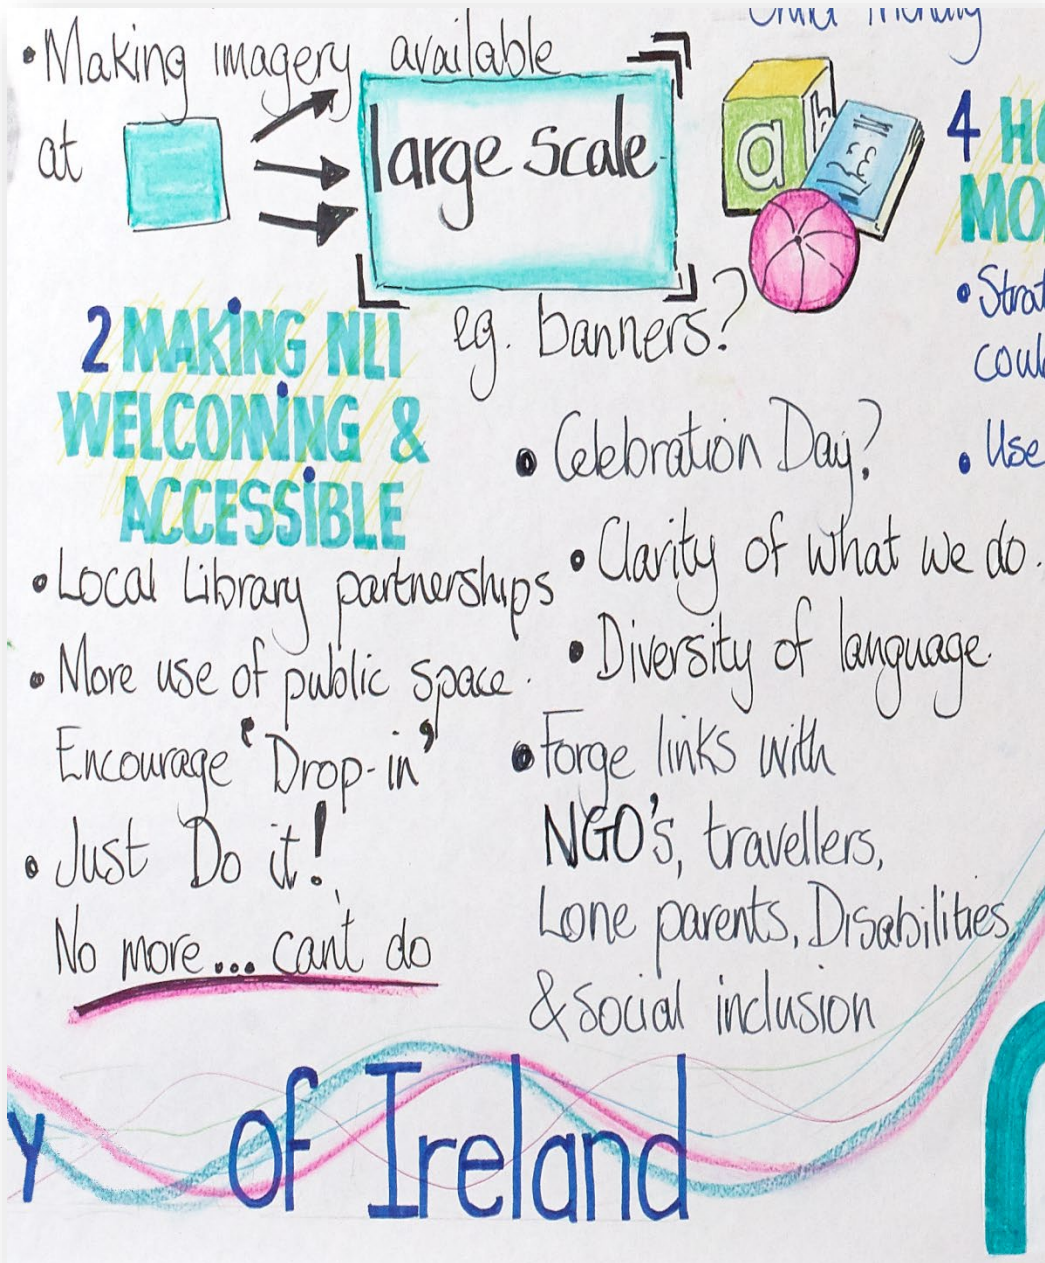 Child friendly
• Making imagery available
at large scale
eg. banners?
a b
123
2 MAKING NLI
WELCOMING &
ACCESSIBLE
• Local Library partnerships
• More use of public space.
Encourage 'Drop-in'
• Just Do it!
No more... cant do
• Celebration Day?
• Clarity of what we do.
• Diversity of language.
• Forge links with
NGO's, travellers,
Lone parents, Disabilities
& Social inclusion
4 HO
MO
• Strat
coul
• Use
y of Ireland